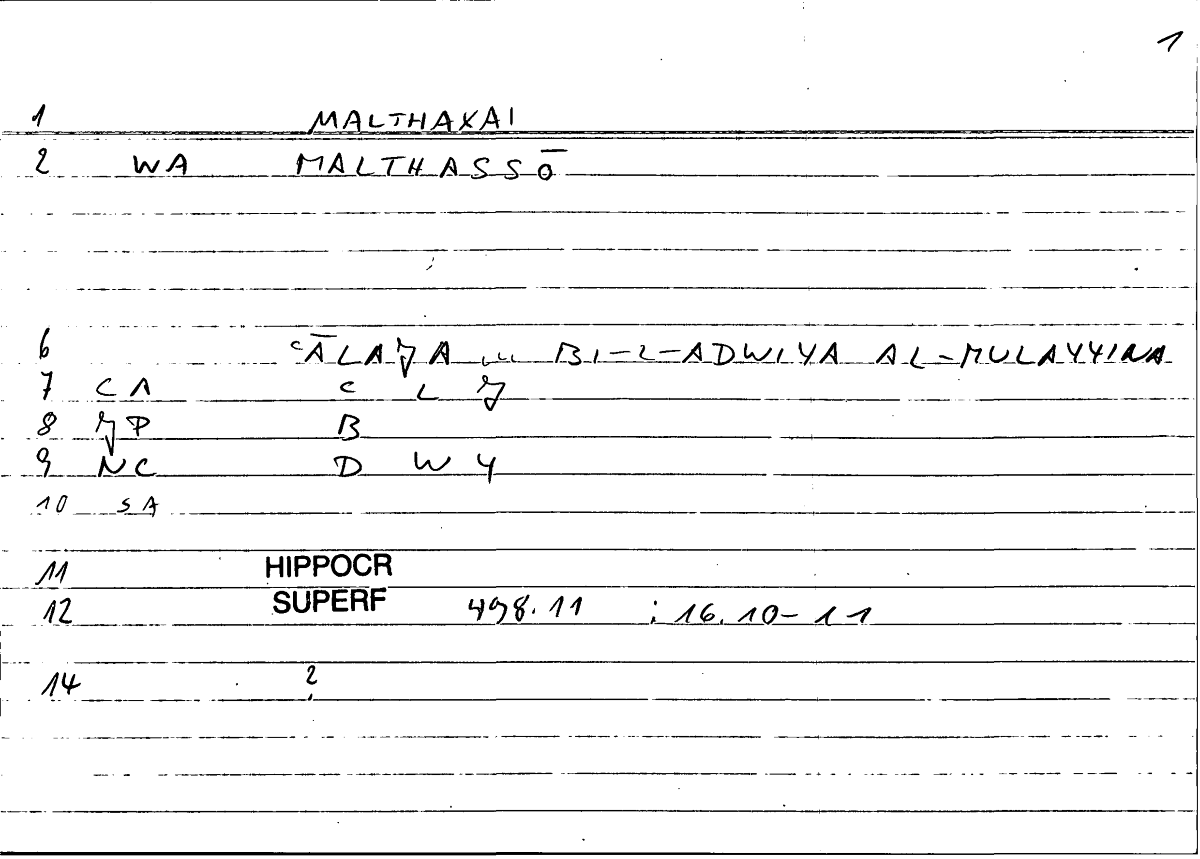 1
1 MALTHAXAI
2 WA MALTHASSŌ
6 ʿĀLAǦA ... BI-L-ADWIYA AL-MULAYYINA
7 CA ʿ L Ǧ
8 ǦP B
9 NC D W Y
10 SA
11 HIPPOCR
12 SUPERF 498.11 ; 16.10-11
14 ?